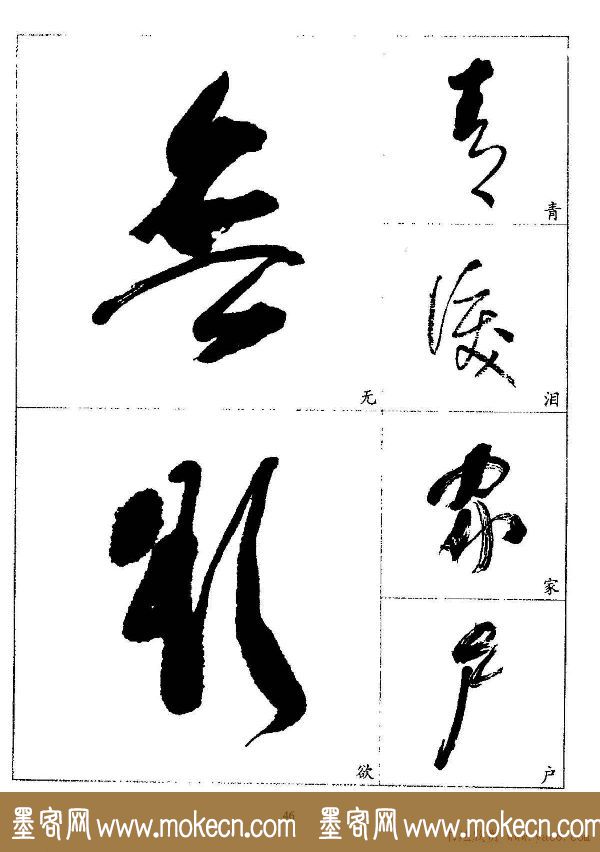 無
无
欲
欲
青
青
淚
泪
家
家
户
户
46
墨客网 www.mokecn.com 墨客网 www.mokecn.com